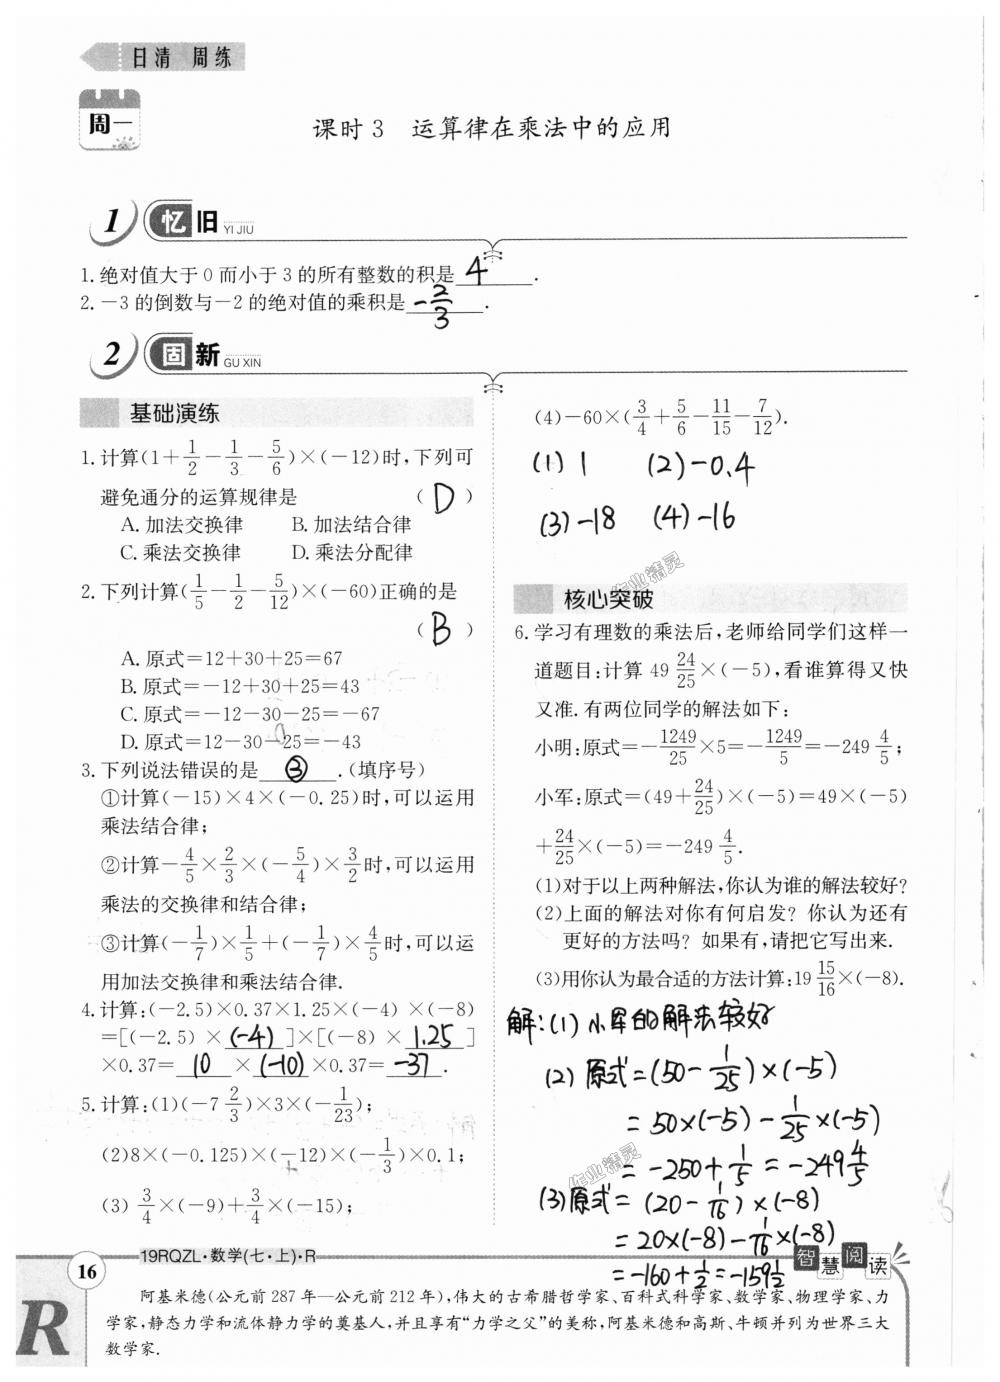 日清 周练
周一
课时3 运算律在乘法中的应用
1 忆旧 YI JIU
1.绝对值大于0而小于3的所有整数的积是 4 .
2.-3的倒数与-2的绝对值的乘积是 -2/3 .
2 固新 GU XIN
基础演练
1.计算(1+1/2-1/3-5/6)×(-12)时,下列可
避免通分的运算规律是 ( D )
A.加法交换律 B.加法结合律
C.乘法交换律 D.乘法分配律
2.下列计算(1/5-1/2-5/12)×(-60)正确的是
( B )
A.原式=12+30+25=67
B.原式=-12+30+25=43
C.原式=-12-30-25=-67
D.原式=12-30-25=-43
3.下列说法错误的是 ③ .(填序号)
①计算(-15)×4×(-0.25)时,可以运用
乘法结合律;
②计算-4/5×2/3×(-5/4)×3/2时,可以运用
乘法的交换律和结合律;
③计算(-1/7)×1/5+(-1/7)×4/5时,可以运
用加法交换律和乘法结合律.
4.计算:(-2.5)×0.37×1.25×(-4)×(-8)
=[(-2.5)×(-4)]×[(-8)×1.25]
×0.37= 10 ×(-10)×0.37= -37 .
5.计算:(1)(-7 2/3)×3×(-1/23);
(2)8×(-0.125)×(-12)×(-1/3)×0.1;
(3) 3/4×(-9)+3/4×(-15);
(4)-60×(3/4+5/6-11/15-7/12).
(1) 1 (2)-0.4
(3)-18 (4)-16
核心突破
6.学习有理数的乘法后,老师给同学们这样一
道题目:计算 49 24/25×(-5),看谁算得又快
又准.有两位同学的解法如下:
小明:原式=-1249/25×5=-1249/5=-249 4/5;
小军:原式=(49+24/25)×(-5)=49×(-5)
+24/25×(-5)=-249 4/5.
(1)对于以上两种解法,你认为谁的解法较好?
(2)上面的解法对你有何启发?你认为还有
更好的方法吗?如果有,请把它写出来.
(3)用你认为最合适的方法计算:19 15/16×(-8).
解:(1)小军的解法较好
(2)原式=(50-1/25)×(-5)
=50×(-5)-1/25×(-5)
=-250+1/5=-249 4/5
(3)原式=(20-1/16)×(-8)
=20×(-8)-1/16×(-8)
=-160+1/2=-159 1/2
作业精灵
作业精灵
16
19RQZL·数学(七·上)·R
智慧阅读
R
阿基米德(公元前287年—公元前212年),伟大的古希腊哲学家、百科式科学家、数学家、物理学家、力
学家,静态力学和流体静力学的奠基人,并且享有“力学之父”的美称,阿基米德和高斯、牛顿并列为世界三大
数学家.